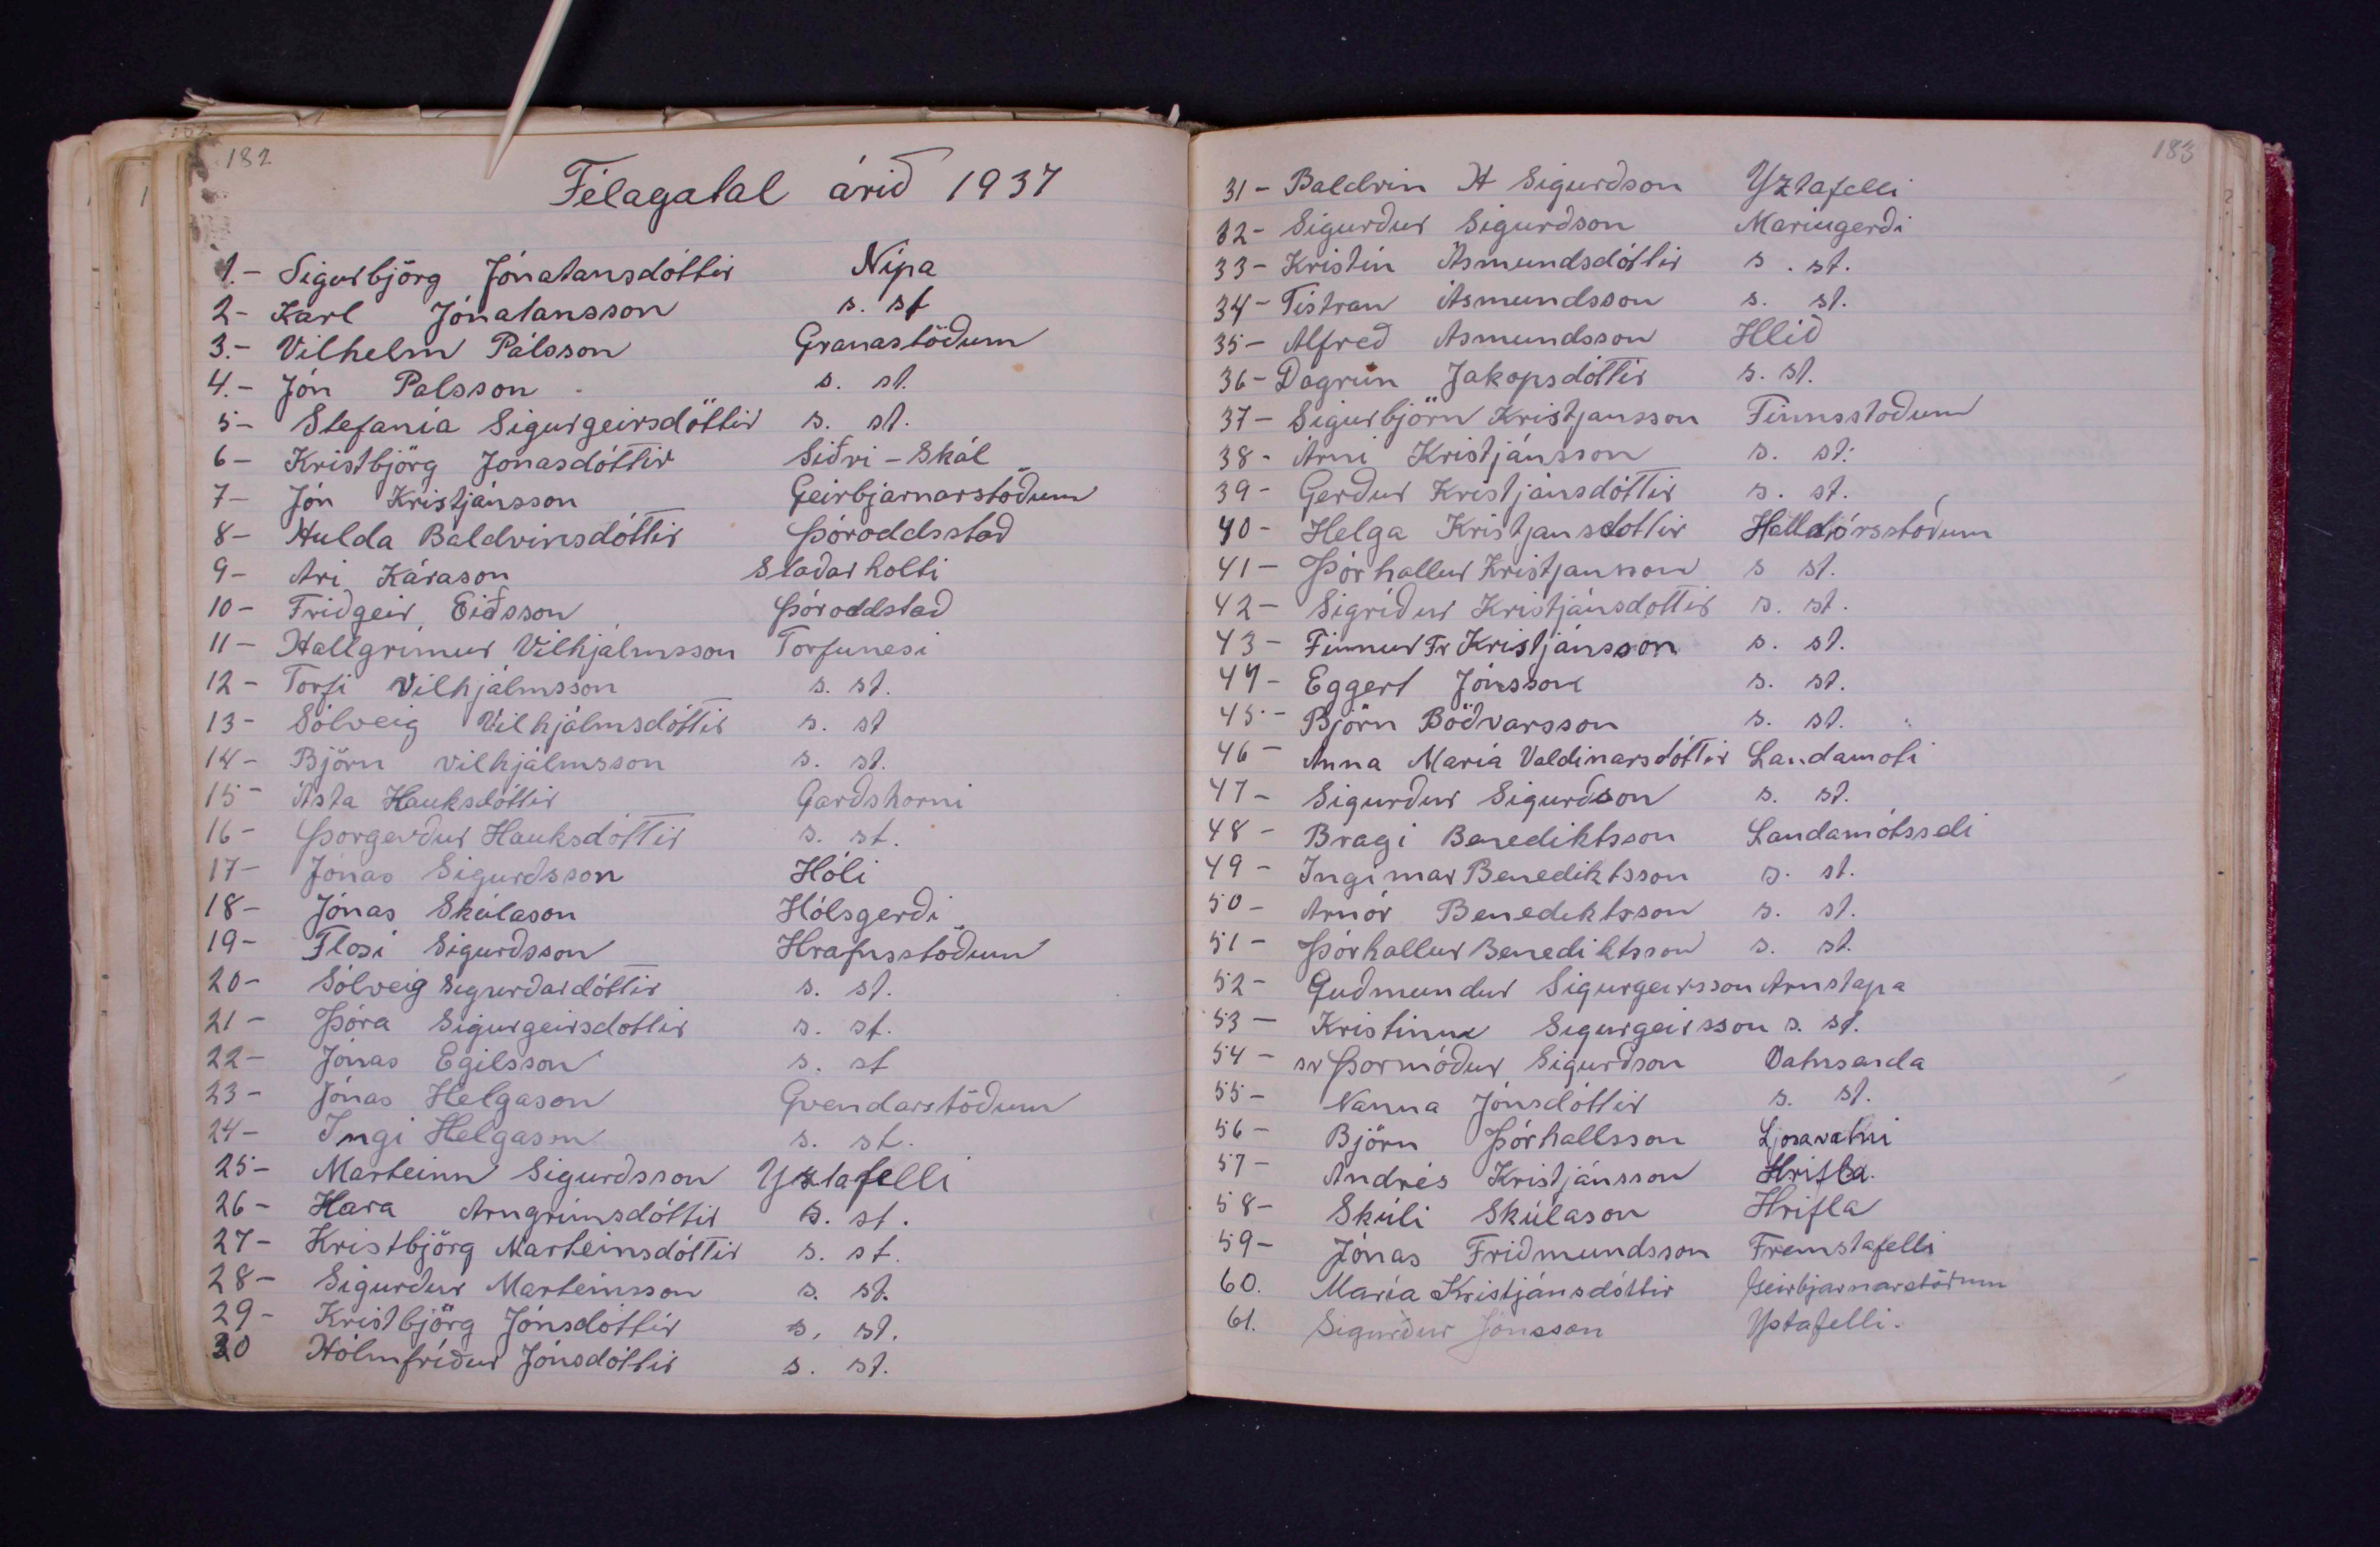 182
Félagatal árið 1937
1.- Sigurbjörg Jónatansdóttir Nípa
2- Karl Jónatansson s. st
3.- Vilhelm Pálsson Granastöðum
4.- Jón Palsson s. st.
5- Stefanía Sigurgeirsdóttir s. st.
6- Kristbjörg Jónasdóttir Siðri-Skál
7- Jón Kristjánsson Geirbjarnarstöðum
8- Hulda Baldvinsdóttir Þóroddsstad
9- Ari Kárason Staðarholti
10- Friðgeir Eiðsson Þóroddstað
11- Hallgrímur Vilhjálmsson Torfunesi
12- Torfi Vilhjálmsson s. st.
13- Sólveig Vilhjálmsdóttir s. st
14- Björn vilhjálmsson s. st.
15- Ásta Hauksdóttir Garðshorni
16- Þorgerður Hauksdóttir s. st.
17- Jónas Sigurðsson Hóli
18- Jónas Skúlason Hólsgerði
19- Flosi Sigurðsson Hrafnsstöðum
20- Sólveig Sigurðardóttir s. st.
21- Þóra Sigurgeirsdóttir s. st.
22- Jónas Egilsson s. st
23- Jónas Helgason Gvendarstöðum
24- Ingi Helgason s. st.
25- Marteinn Sigurðsson Yztafelli
26- Kara Arngrímsdóttir s. st.
27- Kristbjörg Marteinsdóttir s. st.
28- Sigurður Marteinsson s. st.
29- Kristbjörg Jónsdóttir s. st.
30 Hólmfríður Jónsdóttir s. st.
183
31- Baldvin H Sigurðson Yztafelli
32- Sigurður Sigurðson Mariugerði
33- Kristín Ásmundsdóttir s. st.
34- Tistran Ásmundsson s. st.
35- Alfreð Asmundsson Hlíð
36- Dagrún Jakopsdóttir s. st.
37- Sigurbjörn Kristjansson Finnsstoðum
38- Árni Kristjánsson s. st.
39- Gerður Kristjánsdóttir s. st.
40- Helga Kristjansdottir Halldórsstóðum
41- Þórhallur Kristjansson s st.
42- Sigríður Kristjánsdottir s. st.
43- Finnur Fr Kristjánsson s. st.
44- Eggert Jónsson s. st.
45- Björn Böðvarsson s. st.
46- Anna María Valdimarsdóttir Landamoti
47- Sigurður Sigurðson s. st.
48- Bragi Benediktsson Landamótsseli
49- Ingimar Benediktsson s. st.
50- Arnór Benediktsson s. st.
51- Þórhallur Benediktsson s. st.
52- Guðmundur Sigurgeirsson Arnstapa
53- Kristinn Sigurgeirsson s. st.
54- sr Þormóður Sigurðson Vatnsenda
55- Nanna Jónsdóttir s. st.
56- Björn Þórhallsson Ljosavatni
57- Andrés Kristjánsson Hrifla.
58- Skúli Skúlason Hrifla
59- Jónas Friðmundsson Fremstafelli
60. María Kristjánsdóttir Geirbjarnarstöðum
61. Sigurður Jónsson Ystafelli.